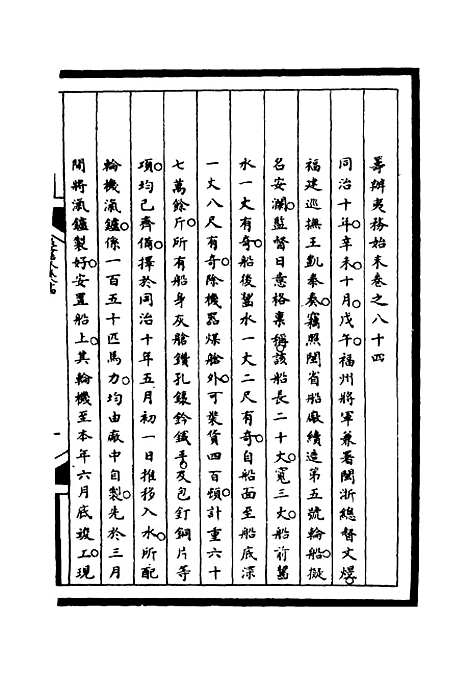 籌辦夷務始末卷之八十四
同治十年辛未十月戊午福州將軍兼署閩浙總督文煜
福建巡撫王凱泰奏竊照閩省船廠續造第五號輪船擬
名安瀾監督日意格稟稱該船長二十丈寬三丈船前喫
水一丈有奇船後喫水一丈二尺有奇自船面至船底深
一丈八尺有奇除機器煤艙外可裝貨四百頓計重六十
七萬餘斤所有船身灰艙鑽孔鎳鈐鐵手及包釘銅片等
項均已齊備擇於同治十年五月初一日推移入水所配
輪機瀛鑪係一百五十匹馬力均由廠中自製先於三月
間將瀛鑪製好安置船上其輪機至本年六月底竣工現